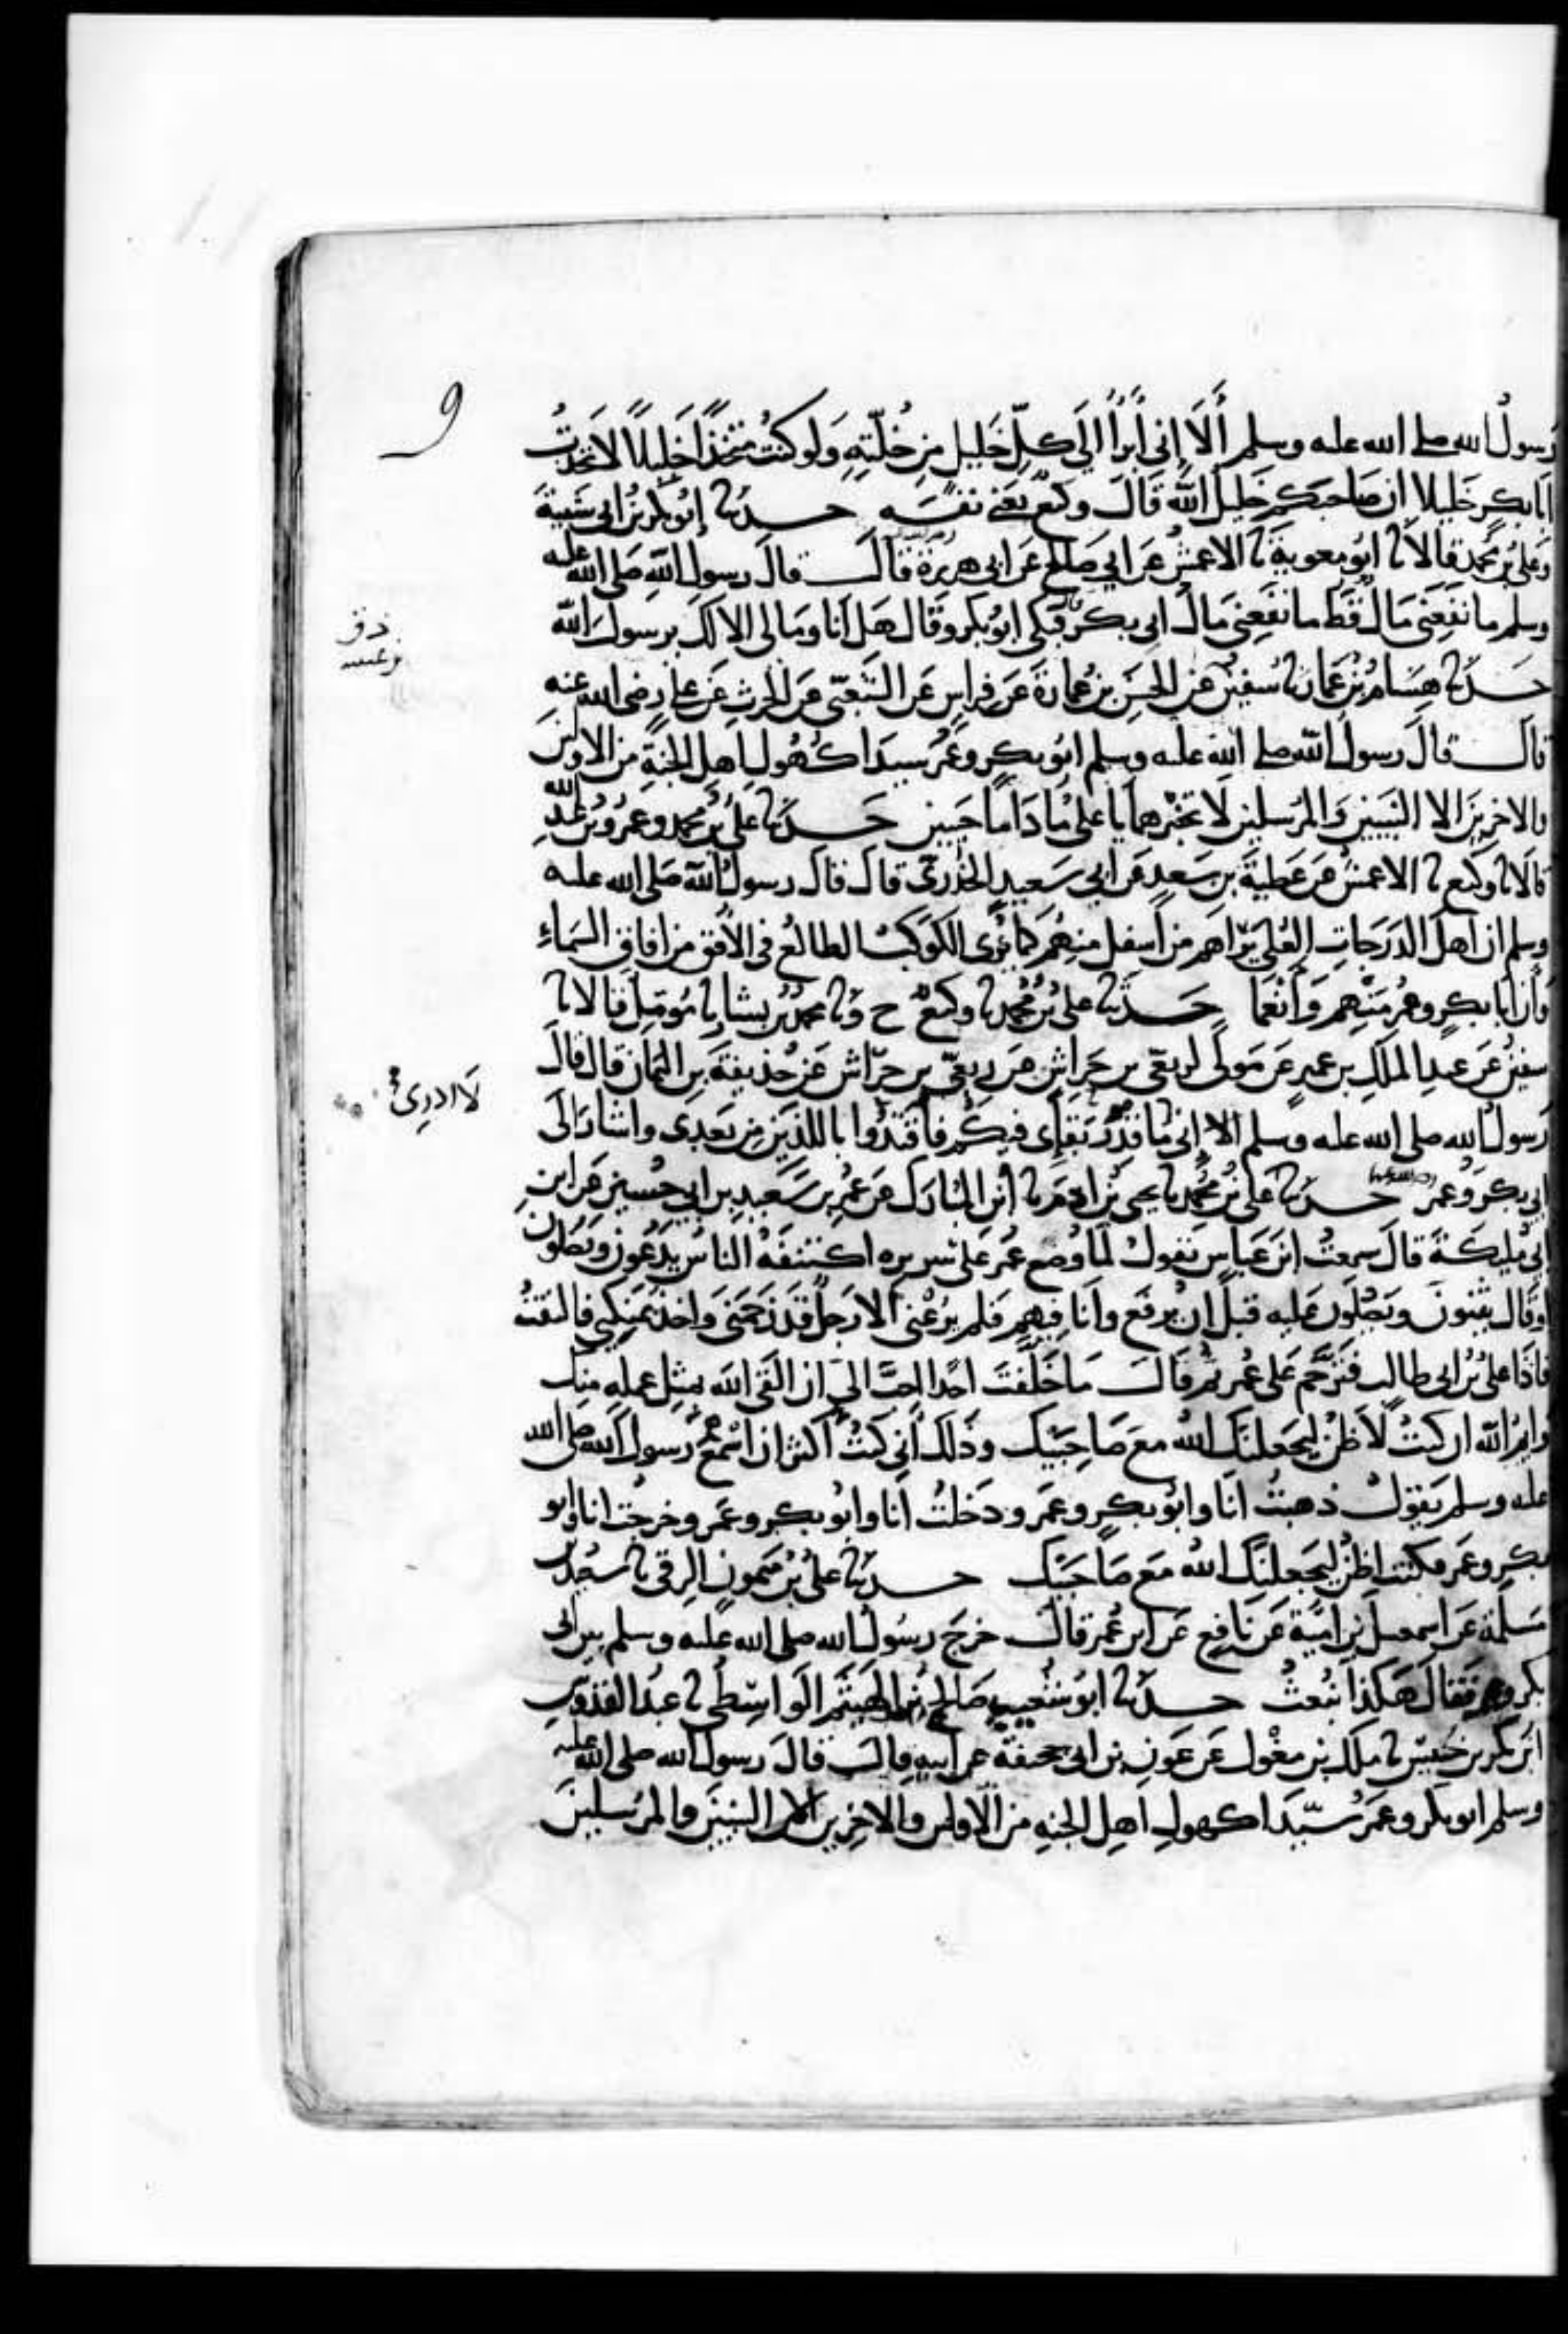 9
رسول الله صلى الله عليه وسلم أَلَا إني أبرأ إلى كلّ خليل من خُلّتِهِ ولو كنتُ متخذًا خليلًا لاتخذتُ
أبا بكر خليلا ان صاحبكم خليل الله قال وكيع يعني نفسه حدثنا أبو بكر بن ابي شيبة
وعلي بن محمد قالا نا ابو معوية نا الاعمش عن ابي صالح عن ابي هريرة قال قال رسول الله صلى الله عليه
وسلم ما نفعني مال قط ما نفعني مال ابي بكر فبكى ابو بكر وقال هل أنا ومالي الا لك يرسول الله
حدثنا هشام بن عمار نا سفين عن الحسن بن عمارة عن فراس عن الشعبي عن الحرث عن علي رضي الله عنه
قال قال رسول الله صلى الله عليه وسلم ابو بكر وعمر سيدا كهول اهل الجنة من الاولين
والاخرين الا النبيين والمرسلين لا تخبرهما يا علي ما داما حيين حدثنا علي بن محمد وعمرو بن عبد الله
قالا نا وكيع نا الاعمش عن عطية بن سعد عن ابي سعيد الخدري قال قال رسول الله صلى الله عليه
وسلم ان اهل الدرجات العلى يراهم من أسفل منهم كما يُرى الكوكب الطالع في الأفق من افاق السماء
وأن أبا بكر وعمر منهم وأنعما حدثنا علي بن محمد نا وكيع ح ونا محمد بن بشار نا مومل قالا نا
سفين عن عبد الملك بن عمير عن مولى لربعي بن حراش عن ربعي بن حراش عن حذيفة بن اليمان قال قال
لا ادري
رسول الله صلى الله عليه وسلم الا إني ما قدر بقإي فيكم فاقتدوا باللذين من بعدي واشار الى
ابي بكر وعمر حدثنا علي بن محمد نا يحيى بن ادم نا ابن المبارك عن عمر بن سعيد بن ابي حسين عن ابن
ابي مليكة قال سمعتُ ابن عباس يقول لما وضع عمر على سريره اكتنفه الناس يدعون ويصلون
او قال يثنون ويصلون عليه قبل ان يرفع وأنا فيهم فلم يرعني الا رجل قد زحمني واخذ بمنكبي فالتفتُ
فاذا علي بن ابي طالب فترحّم على عمر ثم قال ما خلّفت احدا احبّ الي ان القى الله بمثل عمله منك
وايم الله ان كنتُ لاظن ليجعلنك الله مع صاحبيك وذلك أني كنتُ أكثر ان اسمع رسول الله صلى الله
عليه وسلم يقول ذهبتُ انا وابو بكر وعمر ودخلتُ انا وابو بكر وعمر وخرجت انا وابو
بكر وعمر فكنت اظن ليجعلنك الله مع صاحبيك حدثنا علي بن ميمون الرقي نا سعيد بن
مسلمة عن اسمعيل بن امية عن نافع عن ابن عمر قال خرج رسول الله صلى الله عليه وسلم بين ابي
بكر وعمر فقال هكذا نبعث حدثنا ابو شعيب صالح بن الهيثم الواسطي نا عبد القدوس
ابن بكر بن خنيس نا ملك بن مغول عن عون بن ابي جحيفة عن ابيه قال قال رسول الله صلى الله عليه
وسلم ابو بكر وعمر سيّدا كهول اهل الجنه من الاولين والاخرين الا النبيين والمرسلين